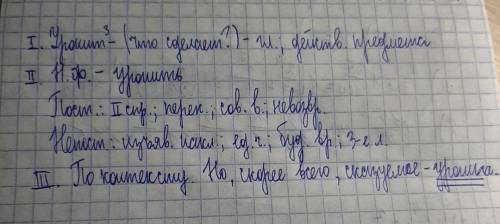 I. Уронит³ - (что сделает?) - гл., действ. предмета
II. Н.ф. - уронить
Пост.: II спр.; перех.; сов. в.; невозвр.
Непост.: изъяв. накл.; ед. ч.; буд. вр.; 3-е л.
III. По контексту. Но, скорее всего, сказуемое - уронила.